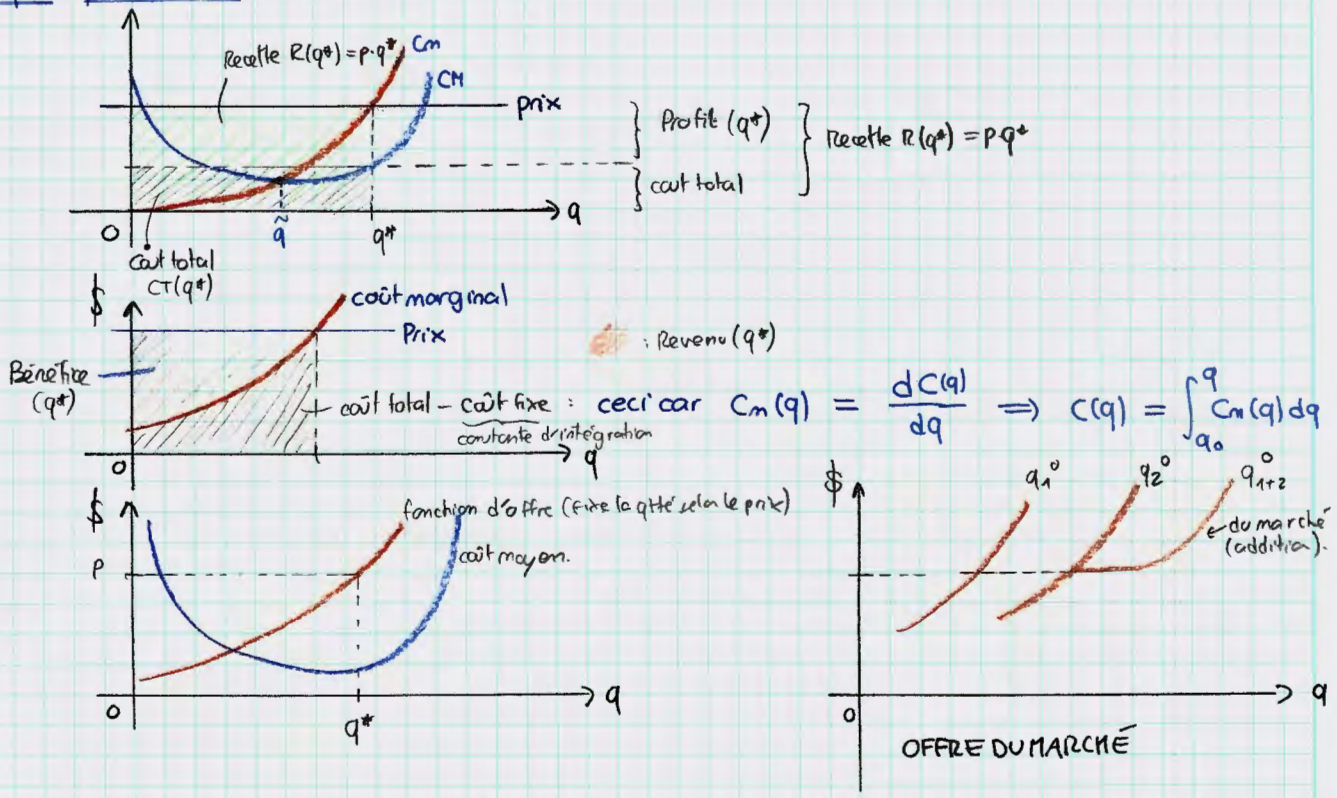 Recette R(q*) = p·q*
Cm
CM
prix
Profit (q*)
coût total
Recette R(q*) = p·q*
0
q̃
q*
q
Coût total
CT(q*)
$
coût marginal
Prix
Bénéfice
(q*)
: Revenu (q*)
coût total – coût fixe : ceci car Cm(q) = dC(q)/dq ⇒ C(q) = ∫_{q0}^{q} Cm(q) dq
constante d'intégration
0
q
$
fonction d'offre (fixe la qtté selon le prix)
coût moyen.
P
0
q*
q
$
q₁⁰
q₂⁰
q₁₊₂⁰
du marché
(addition).
0
q
OFFRE DU MARCHÉ